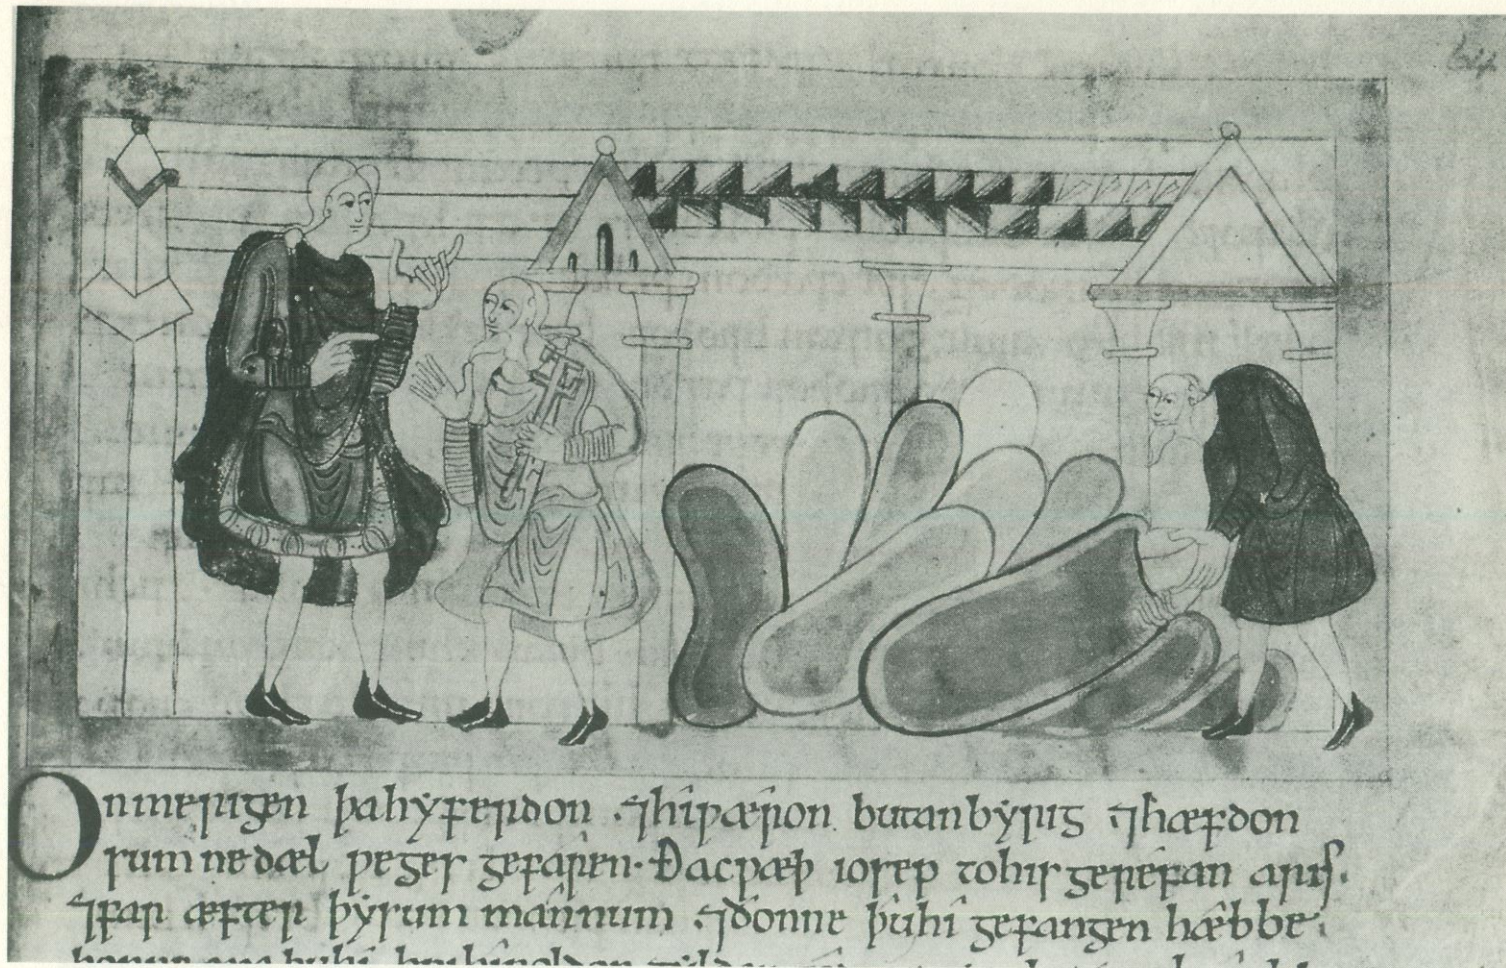 64
On merigen þa hẏ ferdon . ⁊ hi ƿæron butan bẏrig ⁊ hæfdon
sumne dæl ƿeges gefaren. Ða cƿæþ iosep to his gerefan aris.
⁊ far æfter þẏsum mannum ⁊ ðonne þu hi gefangen hæbbe